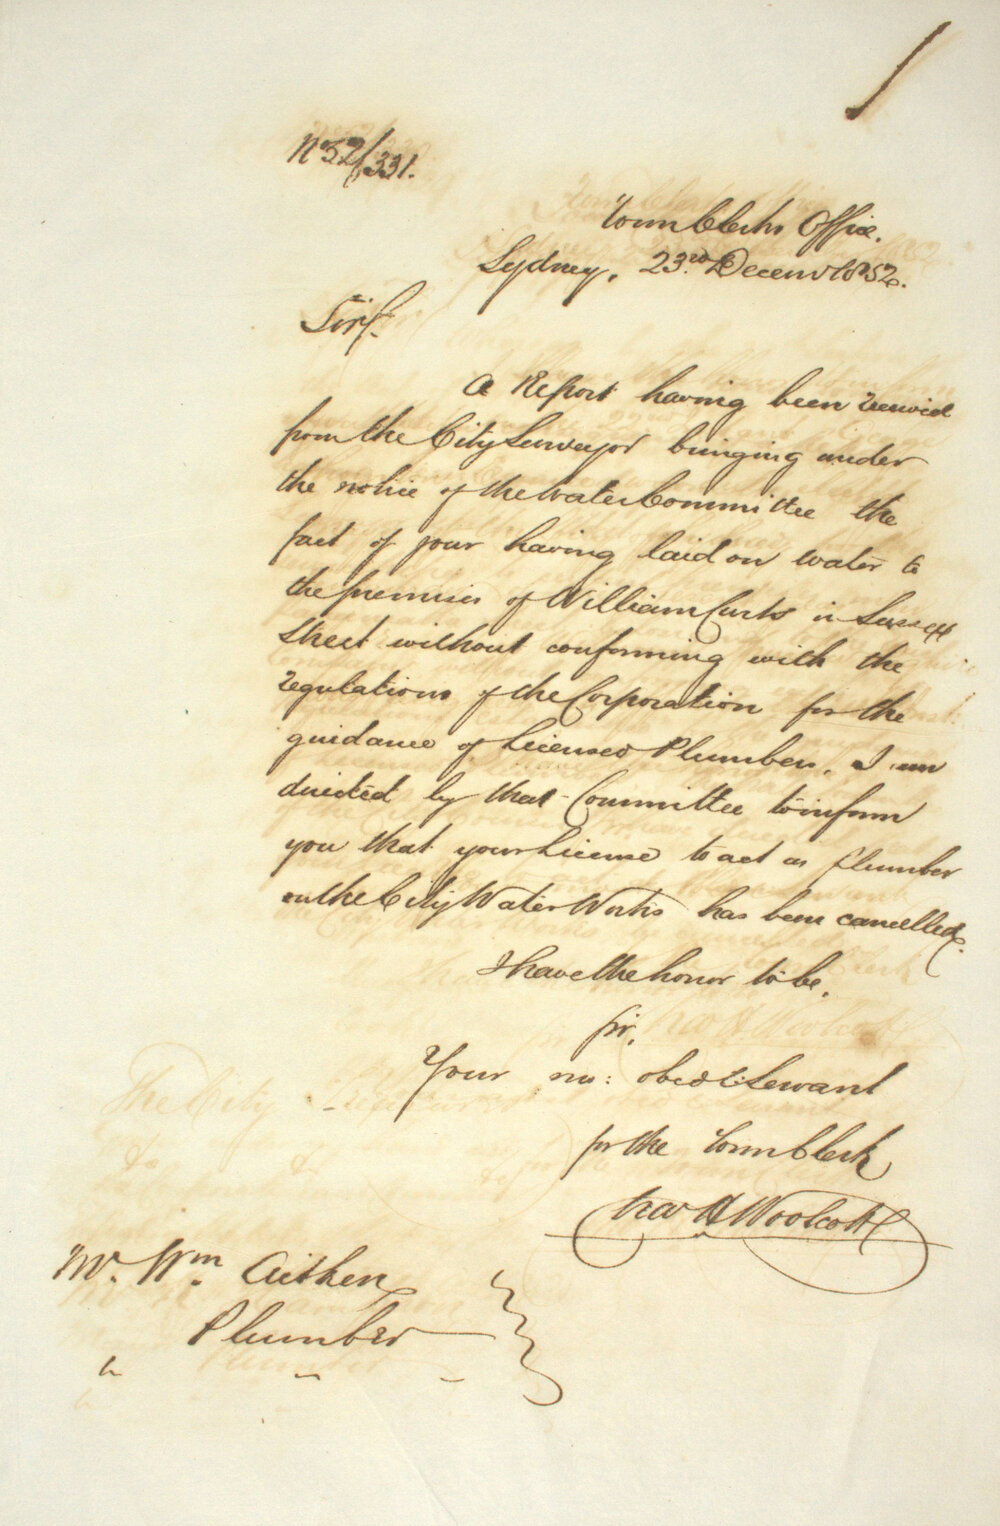 No 52/331.
Town Clerks Office.
Sydney, 23rd Decem 1852.
Sir,
A Report having been received
from the City Surveyor bringing under
the notice of the Water Committee the
fact of your having laid on water to
the premises of William Curts in Sussex
Street without conforming with the
regulations of the Corporation for the
guidance of Licensed Plumbers, I am
directed by that Committee to inform
you that your License to act as Plumber
on the City Water Works has been cancelled.
I have the honor to be,
Sir,
Your mo: obedt Servant
for the Town Clerk
Chas H Woolcott
Mr. Wm. Aitken
Plumber